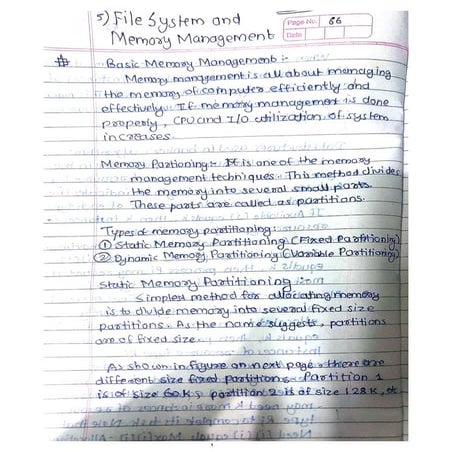 5) File System and
Memory Management
Page No. 66
Date
# Basic Memory Management :-
Memory management is all about managing
the memory of computer efficiently and
effectively. If memory management is done
properly, CPU and I/O utilization of system
increases.
Memory Partioning:- It is one of the memory
management techniques. This method divides
the memory into several small parts.
These parts are called as partitions.
Types of memory partitioning:-
① Static Memory Partitioning (Fixed Partitioning)
② Dynamic Memory Partitioning (Variable Partitioning)
Static Memory Partitioning
Simplest method for allocating memory
is to divide memory into several fixed size
partitions. As the name suggests, partitions
are of fixed size.
As shown in figure on next page, there are
different size fixed partitions. Partition 1
is of size 60K, partition 2 is of size 128K, etc